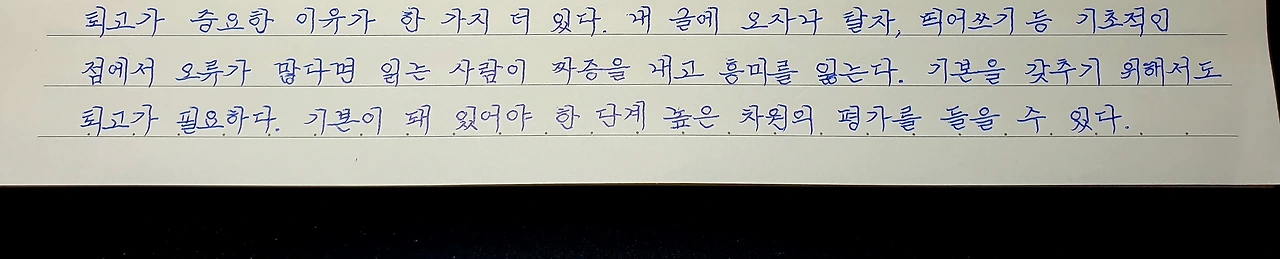 퇴고가 중요한 이유가 한 가지 더 있다. 내 글에 오자나 탈자, 띄어쓰기 등 기초적인
점에서 오류가 많다면 읽는 사람이 짜증을 내고 흥미를 잃는다. 기본을 갖추기 위해서도
퇴고가 필요하다. 기본이 돼 있어야 한 단계 높은 차원의 평가를 들을 수 있다.